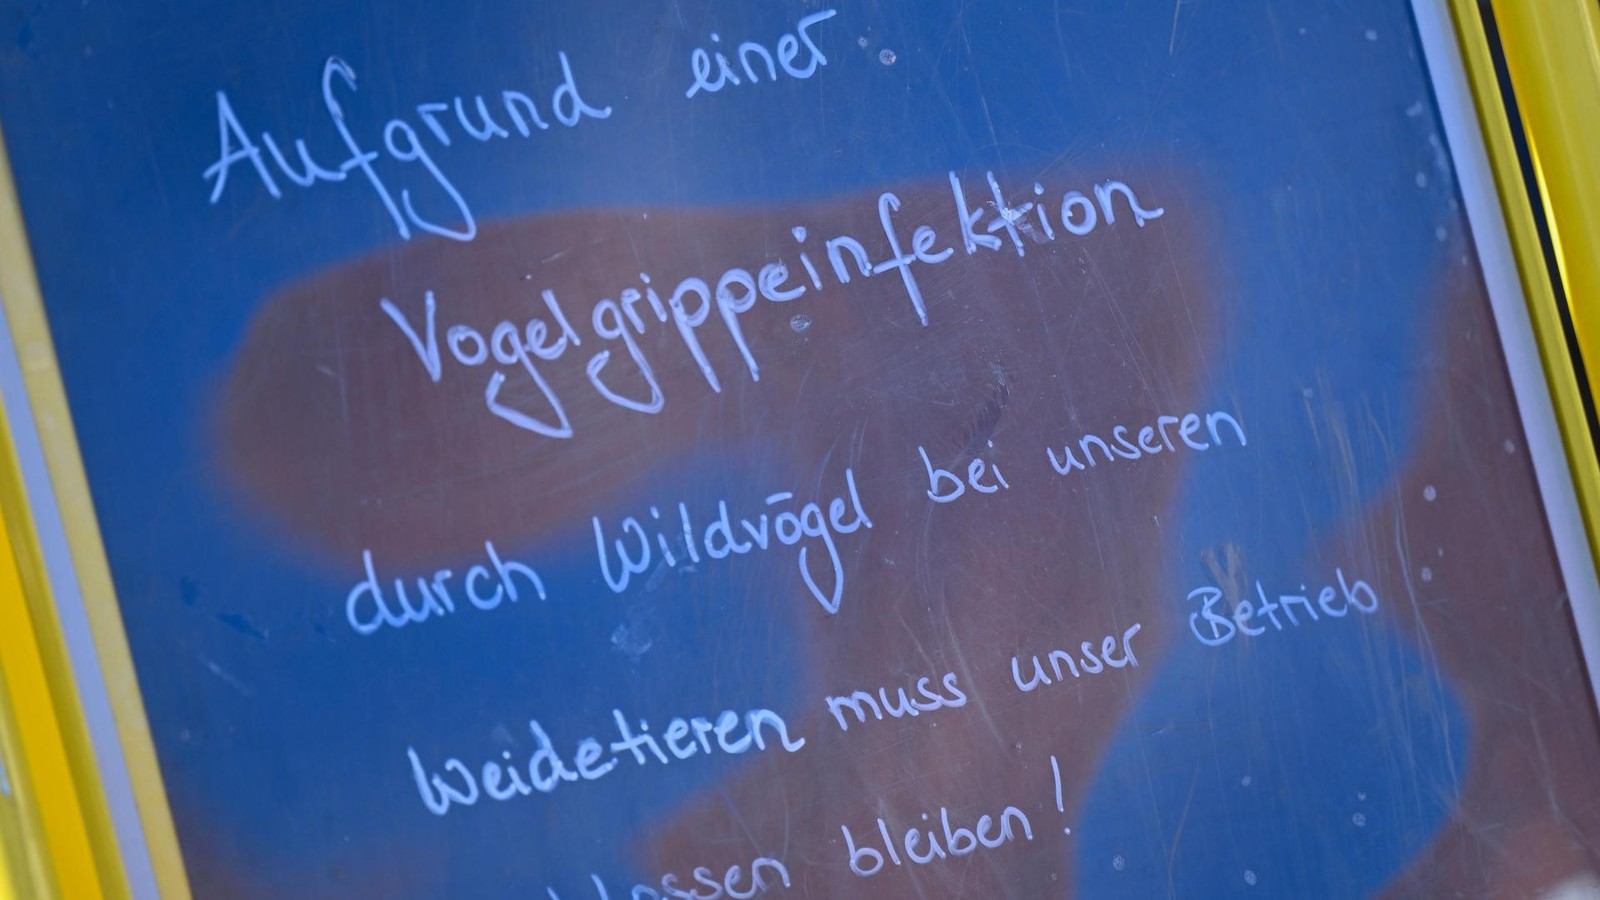 Aufgrund einer
Vogelgrippeinfektion
durch Wildvögel bei unseren
Weidetieren muss unser Betrieb
bleiben!